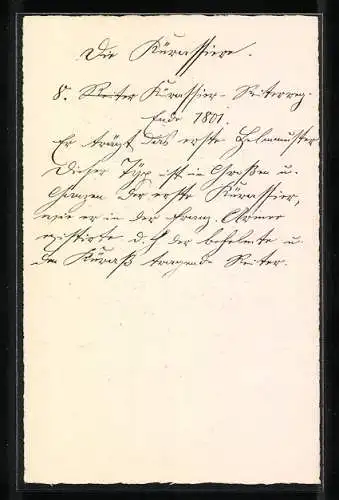 Die Kürassiere.
8. Reiter Kürassier-Reiterreg.
Ende 1801.
Er trägt das erste Helmmuster
Dieser Typ ist in Großen u.
Ganzen der erste Kürassier,
wie er in der franz. Armee
existirte d. h. der behelmte u.
den Küraß tragende Reiter.